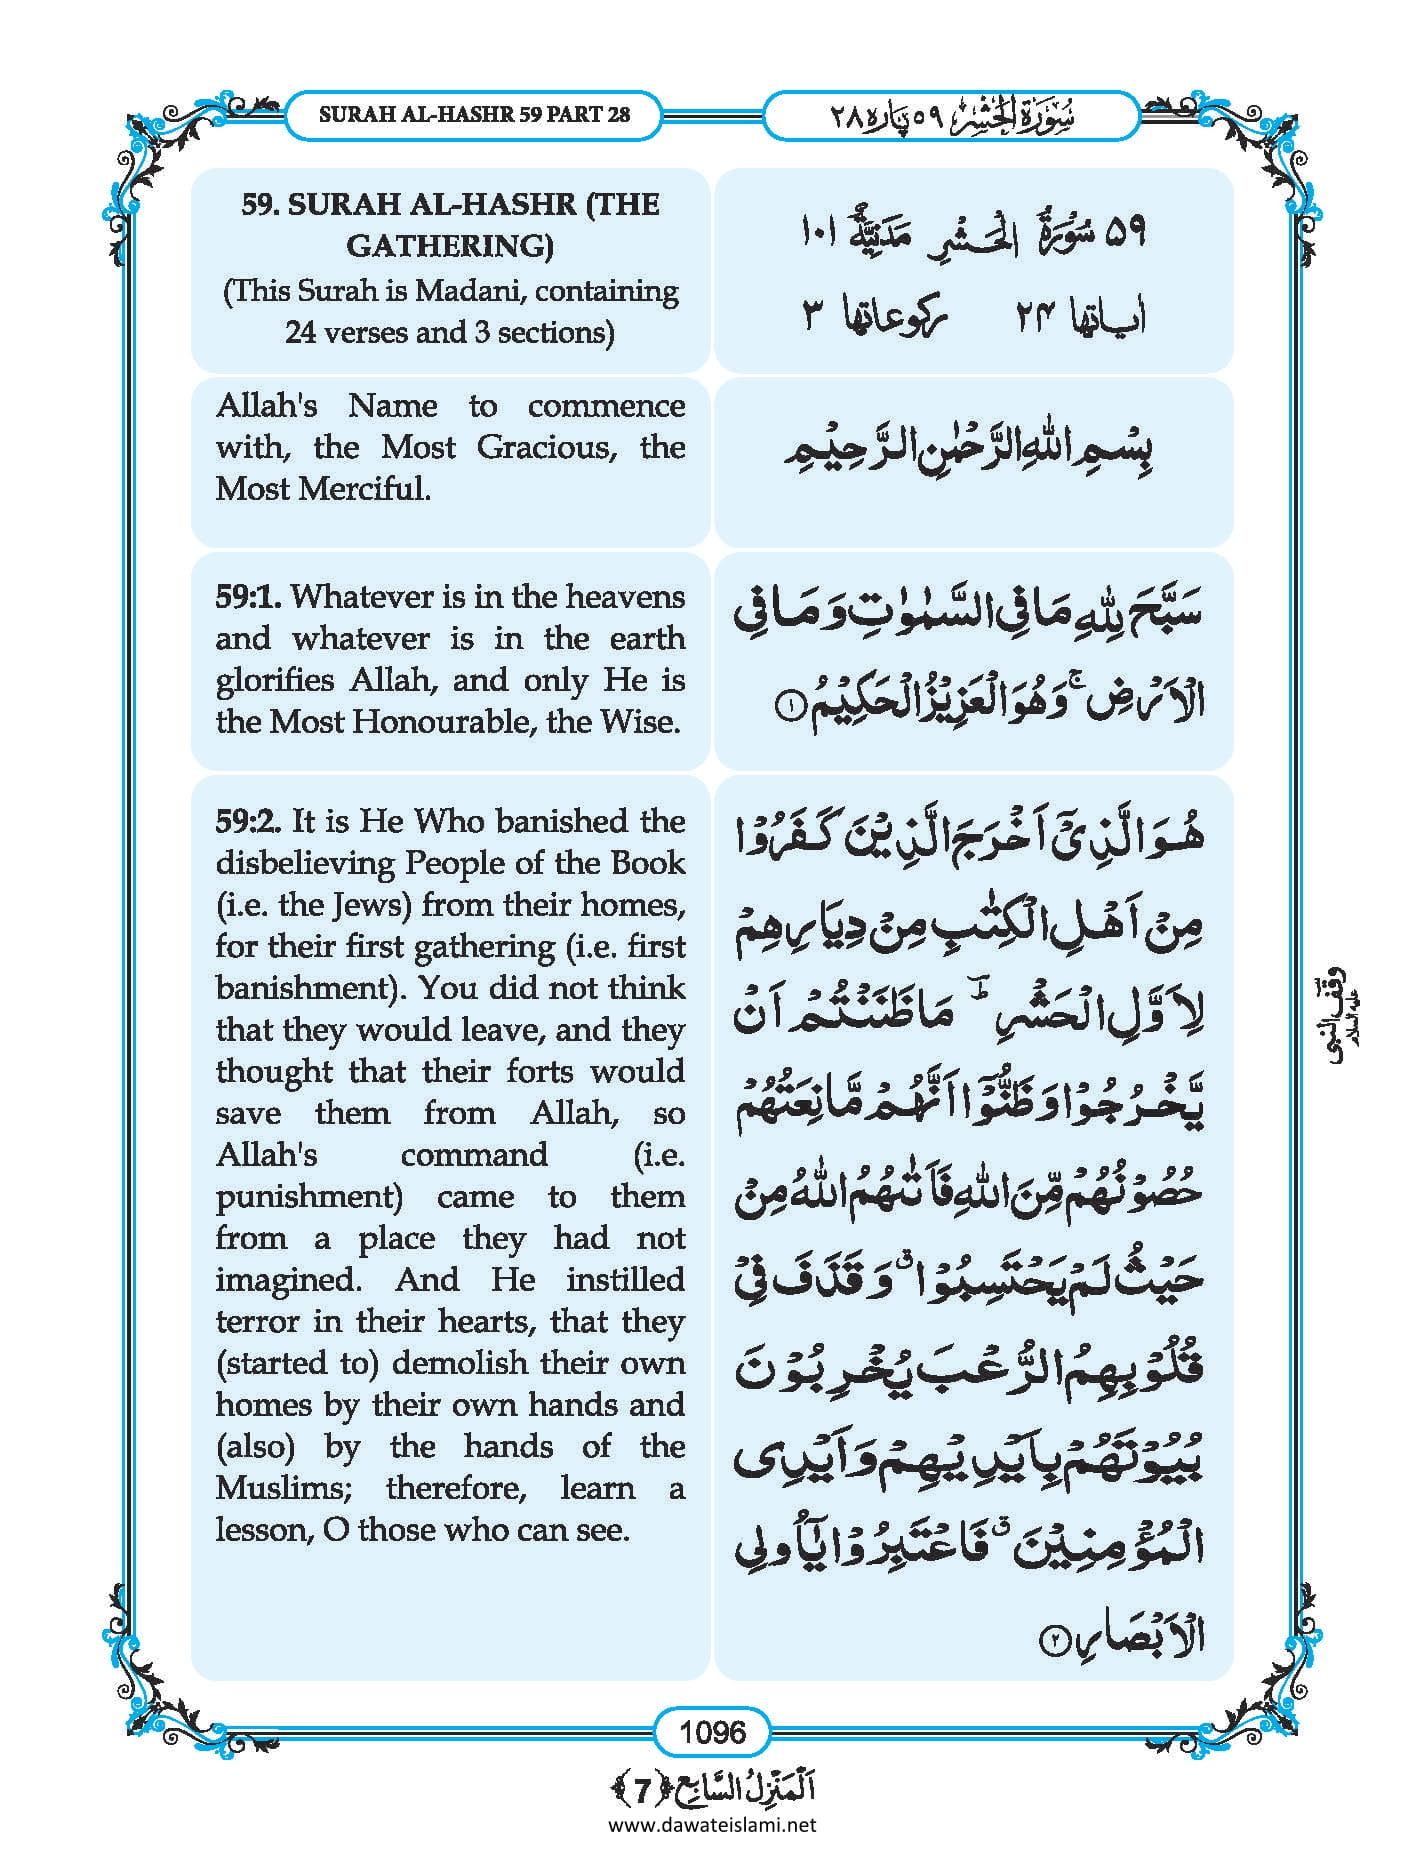 SURAH AL-HASHR 59 PART 28
سُوْرَةُ الْحَشْرِ ٥٩ پاره ٢٨
59. SURAH AL-HASHR (THE
GATHERING)
(This Surah is Madani, containing
24 verses and 3 sections)
٥٩ سُوْرَةُ الْحَشْرِ مَدَنِيَّةٌ ١٠١
اٰیاتها ٢٤ رکوعاتها ٣
Allah's Name to commence
with, the Most Gracious, the
Most Merciful.
بِسْمِ اللّٰهِ الرَّحْمٰنِ الرَّحِيْمِ
59:1. Whatever is in the heavens
and whatever is in the earth
glorifies Allah, and only He is
the Most Honourable, the Wise.
سَبَّحَ لِلّٰهِ مَا فِي السَّمٰوٰتِ وَمَا فِي
الْاَرْضِ ۚ وَهُوَ الْعَزِيْزُ الْحَكِيْمُ ﴿١﴾
59:2. It is He Who banished the
disbelieving People of the Book
(i.e. the Jews) from their homes,
for their first gathering (i.e. first
banishment). You did not think
that they would leave, and they
thought that their forts would
save them from Allah, so
Allah's command (i.e.
punishment) came to them
from a place they had not
imagined. And He instilled
terror in their hearts, that they
(started to) demolish their own
homes by their own hands and
(also) by the hands of the
Muslims; therefore, learn a
lesson, O those who can see.
هُوَ الَّذِيْۤ اَخْرَجَ الَّذِيْنَ كَفَرُوْا
مِنْ اَهْلِ الْكِتٰبِ مِنْ دِيَارِهِمْ
لِاَوَّلِ الْحَشْرِ ؕ مَا ظَنَنْتُمْ اَنْ
يَّخْرُجُوْا وَظَنُّوْۤا اَنَّهُمْ مَّانِعَتُهُمْ
حُصُوْنُهُمْ مِّنَ اللّٰهِ فَاَتٰىهُمُ اللّٰهُ مِنْ
حَيْثُ لَمْ يَحْتَسِبُوْا ۗ وَقَذَفَ فِيْ
قُلُوْبِهِمُ الرُّعْبَ يُخْرِبُوْنَ
بُيُوْتَهُمْ بِاَيْدِيْهِمْ وَاَيْدِي
الْمُؤْمِنِيْنَ ۗ فَاعْتَبِرُوْا يٰۤاُولِي
الْاَبْصَارِ ﴿٢﴾
وقف النبی علیہ السلام
1096
اَلْمَنْزِلُ السَّابِع ﴿7﴾
www.dawateislami.net